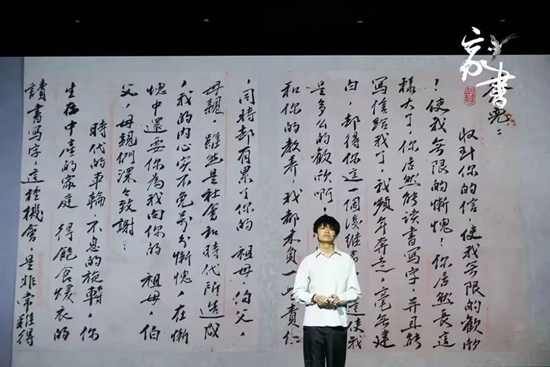 家書
收到你的信，使我無限的歡欣
！使我無限的慚愧！你居然長這
樣大了，你居然能讀書寫字，並且能
寫信給我了，我頻年奔走，毫無建
白，却得你這一個後继 這使我
是多么的歡欣啊！
和你的教养，我都未負一些責仁
，同時却有累了你的 祖母，伯父，
母親，雖然是社會和時代所造成
，我的内心实不免萬分慚愧，在慚
愧中還要你為我向你的 祖母，伯
父，母親們深深致謝！
時代的車輪，不息的旋轉，你
生在中產的家庭 得飽食煖衣的
讀書寫字，這種機會，是非常難得